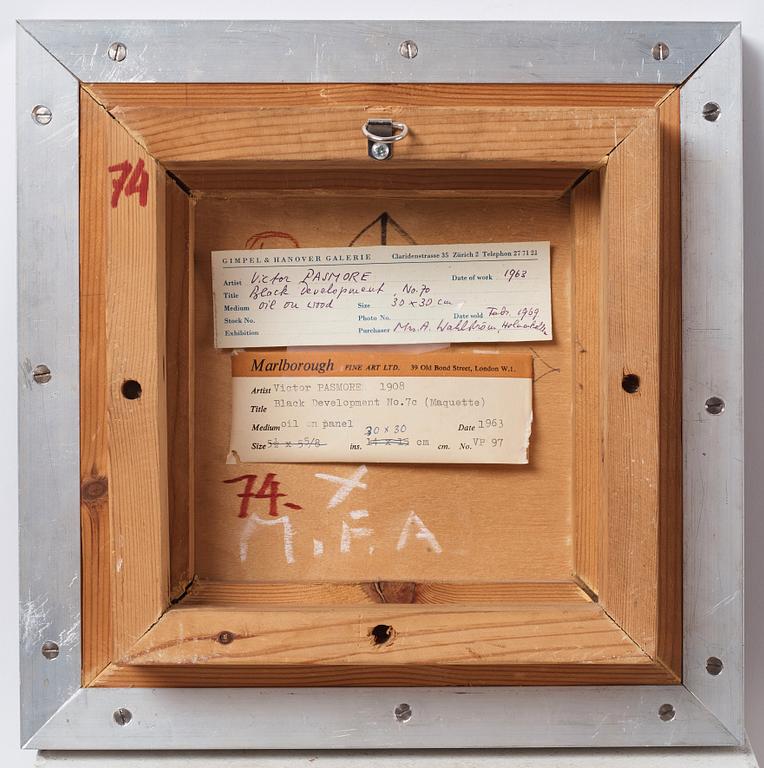 74
GIMPEL & HANOVER GALERIE Claridenstrasse 35 Zürich 2 Telephon 27 71 21
Artist Victor PASMORE Date of work 1963
Title Black Development No. 7c
Medium oil on wood Size 30 x 30 cm
Stock No. Photo No. Date sold Febr. 1969
Exhibition Purchaser Mrs. A. Wahlström,
Marlborough FINE ART LTD. 39 Old Bond Street, London W.1.
Artist Victor PASMORE 1908
Title Black Development No.7c (Maquette)
Medium oil on panel 30 x 30 Date 1963
Size 5½ x 5 5/8 ins. 14 x 15 cm cm. No. VP 97
74. X
M. F. A